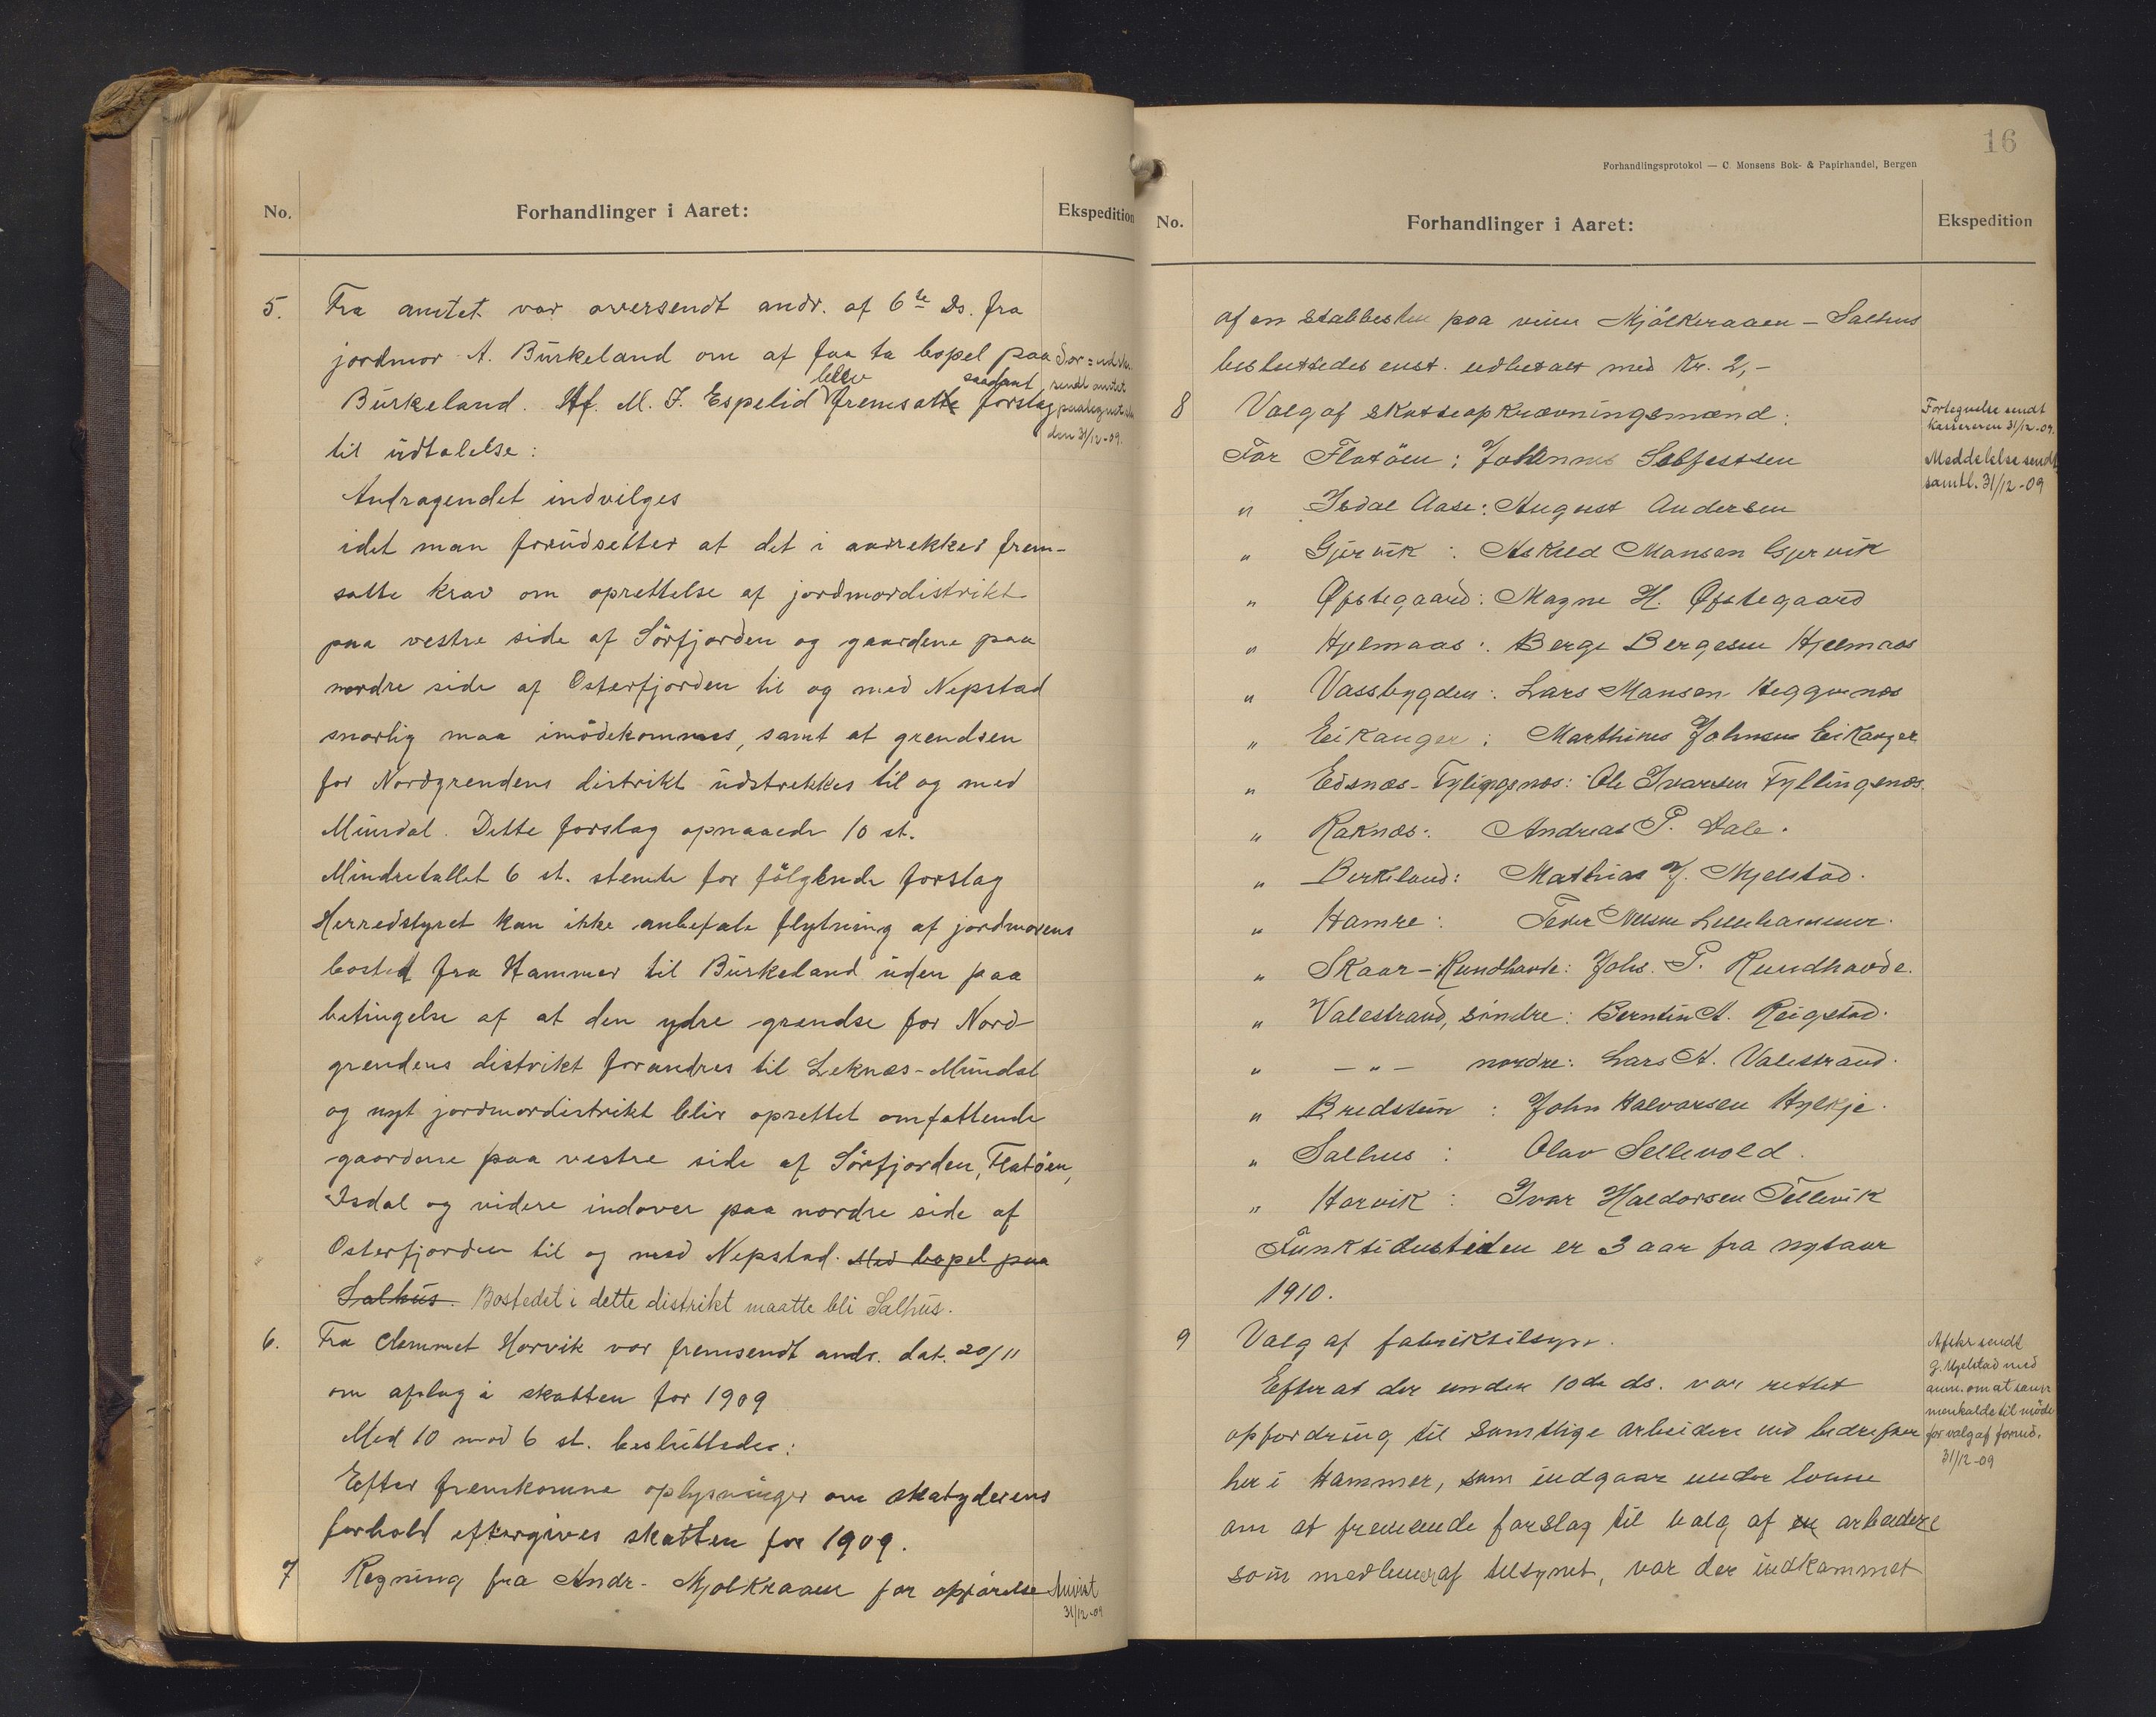 No.
Forhandlinger i Aaret:
Ekspedition
5. Fra amtet var oversendt andr. af 6te Ds. fra
jordmor A. Birkeland om at faa ta bopel paa
Birkeland. Af M. J. Espelid blev fremsatte saadant forslag
til udtalelse:
Andragendet indvilges
idet man forudsetter at det i aarrekker frem-
satte krav om oprettelse af jordmordistrikt
paa vestre side af Sörfjorden og gaardene paa
nordre side af Osterfjorden til og med Nepstad
snarlig maa imödekommes, samt at grendsen
for Nordgrendens distrikt udstrekkes til og med
Mundal. Dette forslag opnaaede 10 st.
Mindretallet 6 st. stemte for fölgende forslag
Herredstyret kan ikke anbefale flytning af jordmorens
bosted fra Hammer til Birkeland uden paa
betingelse af at den ydre grendse for Nord-
grendens distrikt forandres til Leknæs-Mundal
og nyt jordmordistrikt blir oprettet omfattende
gaardene paa vestre side af Sörfjorden, Flatöen,
Isdal og videre indover paa nordre side af
Osterfjorden til og med Nepstad. Med bopel paa
Salhus. Bostedet i dette distrikt maatte bli Salhus.
6. Fra Clemmet Horvik var fremsendt andr. dat. 20/11
om afslag i skatten for 1909
Med 10 mod 6 st. besluttedes:
Efter fremkomne oplysninger om skatyderens
forhold eftergives skatten for 1909.
7 Regning fra Andr. Mjølkeraaen for opförelse
sendt amtet
den 31/12-09.
Anvist
31/12-09
16
Forhandlingsprotokol — C. Monsens Bok- & Papirhandel, Bergen
No.
Forhandlinger i Aaret:
Ekspedition
af en stabbesten paa veien Mjölkeraaen - Salhus
besluttedes enst. udbetalt med Kr. 2,-
8 Valg af skatteopkrævningsmænd:
For Flatöen: Johannes Solfestsen
" Isdal Aase: August Andersen
" Gjervik: Askild Mansen Gjervik
" Øpstegaard: Magne H. Øpstegaard
" Hjelmaas: Berge Bergesen Hjelmaas
" Vassbygden: Lars Mansen Heggernæs
" Eikanger: Marthines Johnsen Eikanger
" Eidsnæs-Fyllingsnæs: Ole Ivarsen Fyllingsnæs.
" Raknæs: Andreas P. Dale.
" Birkeland: Mathias J. Mjelstad.
" Hamre: Peder Nilsen Lillehammer.
" Skaar-Rundhovde: Johs. P. Rundhovde.
" Valestrand, söndre: Berntin A. Reigstad.
" - " - nordre: Lars A. Valestrand.
" Bredstun: John Halvorsen Hylkje.
" Salhus: Olav Sellevold.
" Horvik: Ivar Haldorsen Tellevik
Funktidustiden er 3 aar fra nytaar
1910.
9 Valg af fabriktilsyn.
Efterat der under 10de ds. var rettet
opfordring til samtlige arbeidere ved bedrifter
her i Hammer, som indgaar under lovene
om at fremsende forslag til valg af en arbeidere
som medlemer af tilsynet, var der indkommet
Fortegnelse sendt
kassereren 31/12-09.
Meddelelse sendt
samtl. 31/12-09
Afskr sendt
G. Mjelstad med
anm. om at sam
menkalde til möde
for valg af formd.
31/12-09